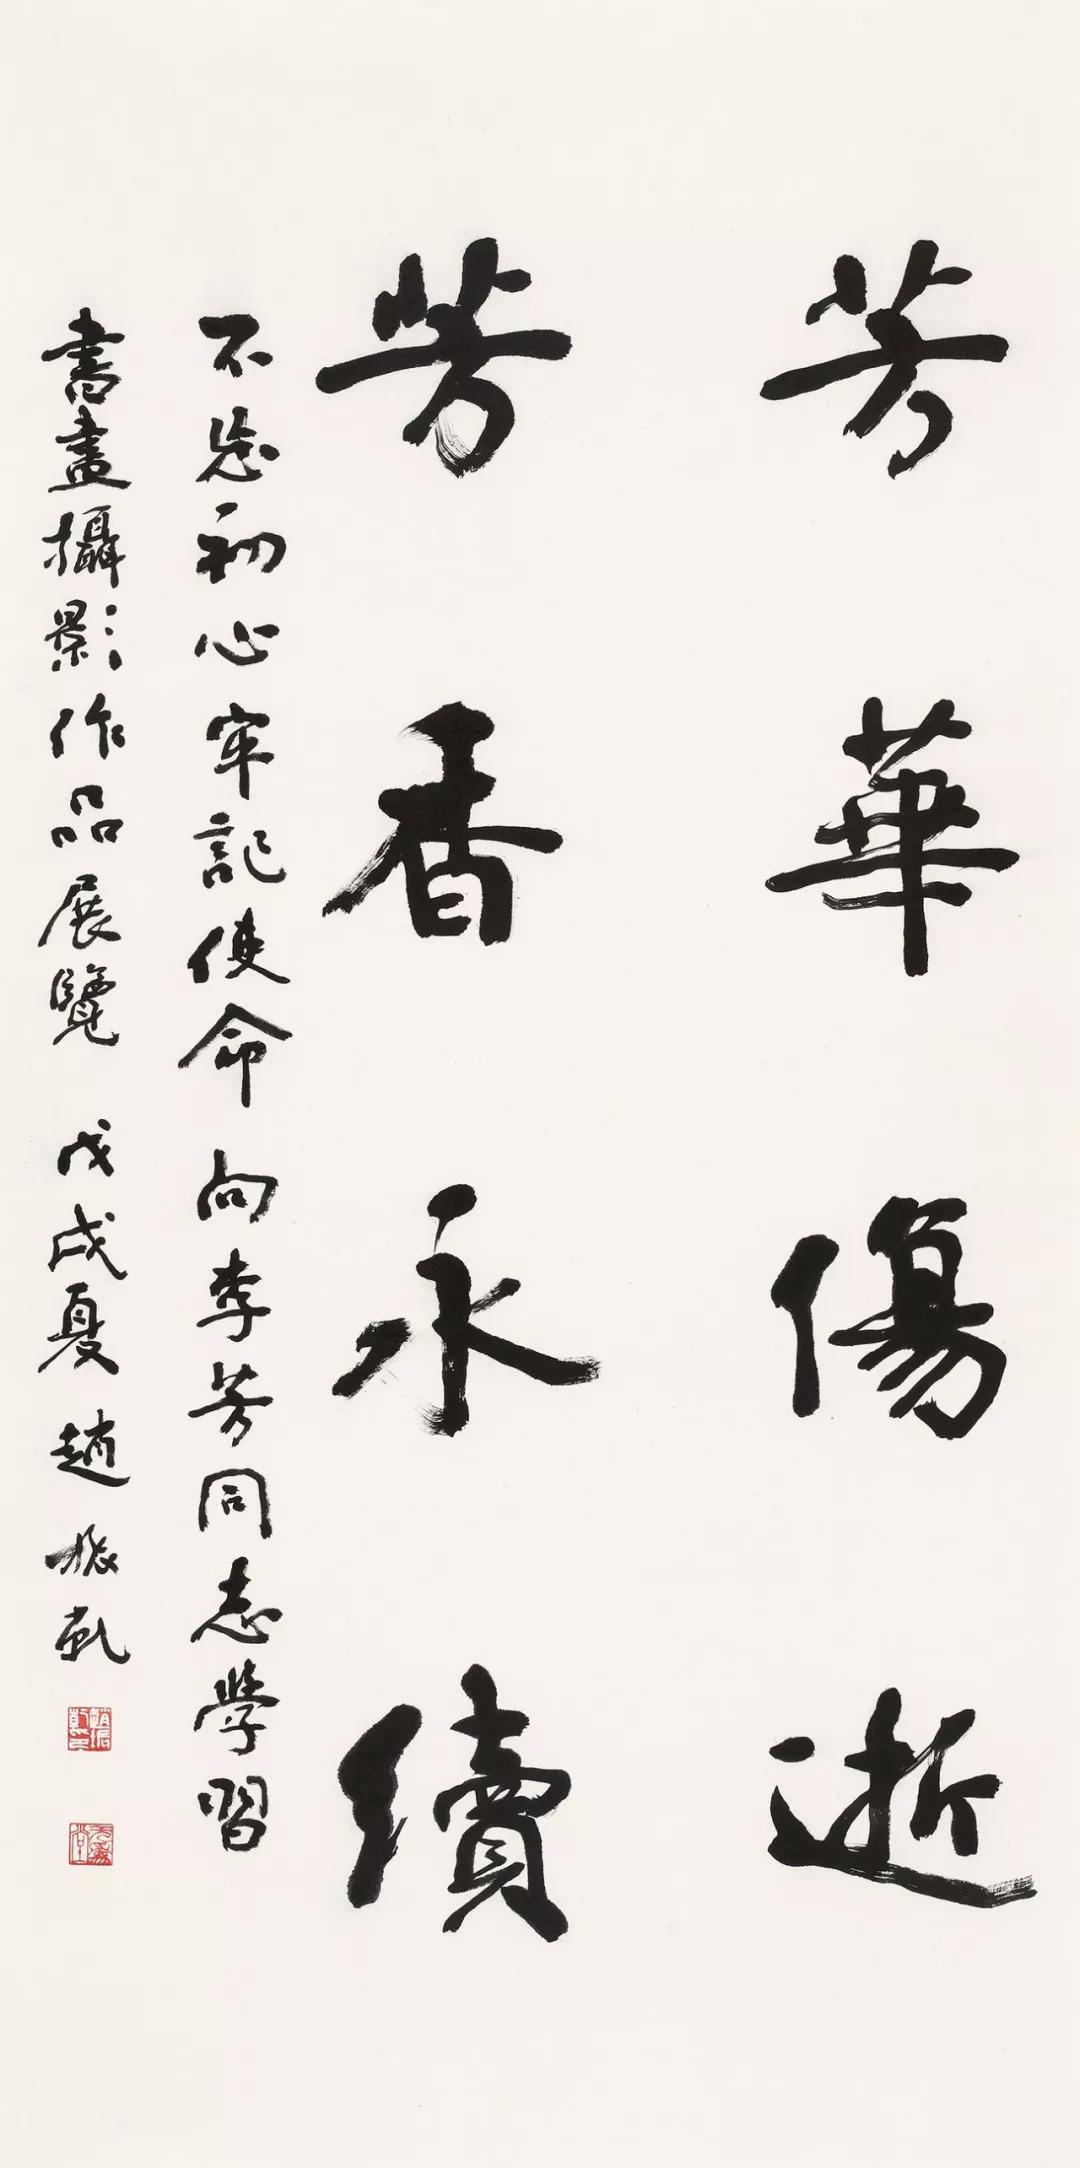 芳華傷逝
芳香永續
不忘初心牢記使命向李芳同志學習
書畫攝影作品展覽 戊戌夏 趙振乾